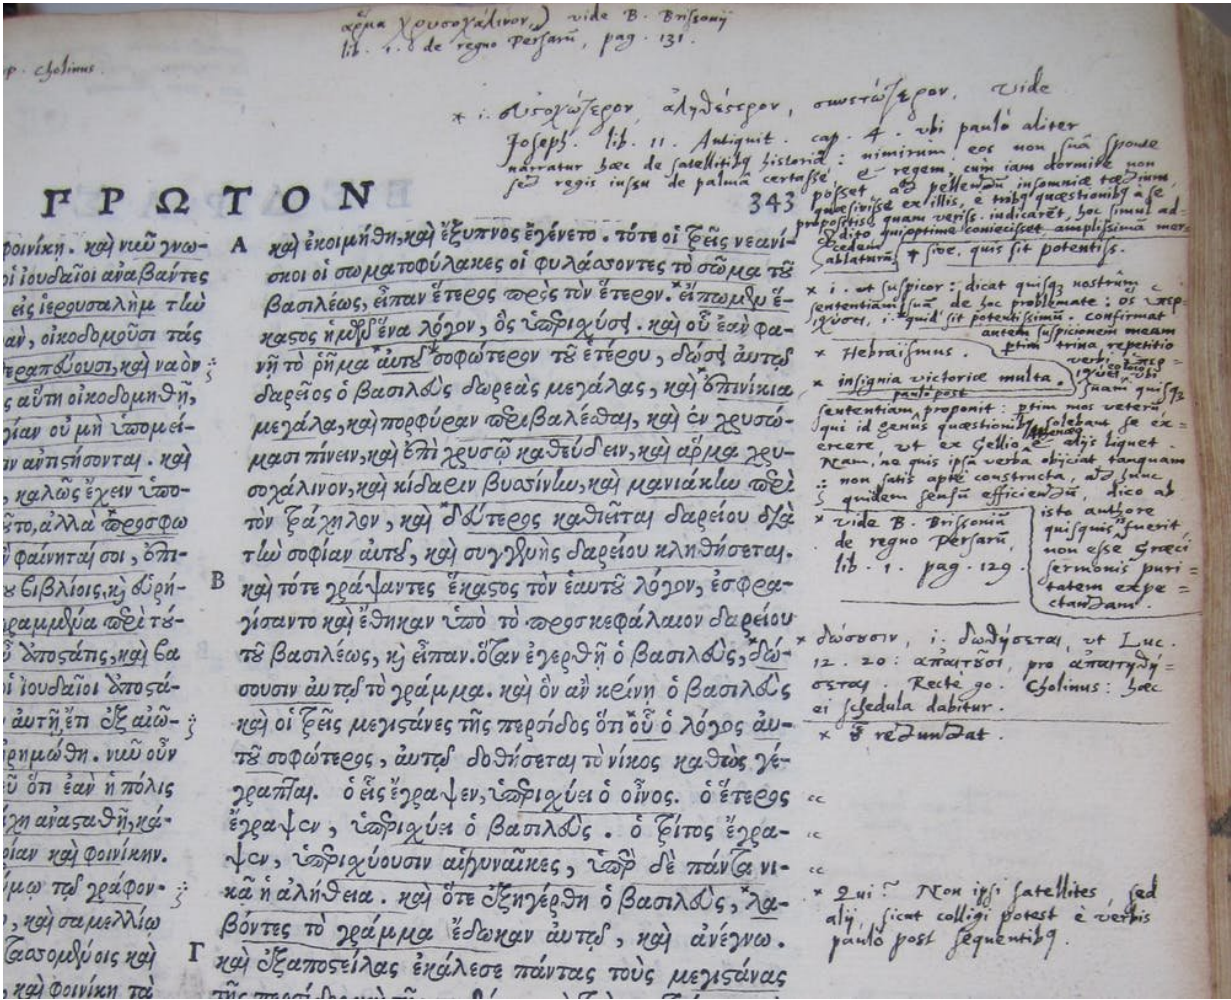 ἅρμα χρυσοχάλινον,) vide B. Brissonij
lib. 1. de regno Persarū, pag. 131.
Cholinus.
* i. σοφώτερον, ἀληθέστερον, συνετώτερον. vide
Joseph. lib. 11. Antiquit. cap. 4. vbi pauló aliter
narratur hæc de satellitibꝗ historia: nimirum eos non suâ sponte
sed regis iussu de palmâ certasse: & regem, cùm iam dormire non
posset, ad pellendū insomniæ tædium,
quæsivisse ex illis, è tribꝗ quæstionibꝗ à se
propositis, quam veriss. indicarēt, hoc simul ad=
dito quiꝗ optime coniecisset amplissima mer=
cedem ablaturū
† sive, quis sit potentiss.
ΠΡΩΤΟΝ
343
φοινίκη. καὶ νῦν γνω-
οἱ ἰουδαῖοι ἀναβαντες
εἰς ἱερουσαλὴμ τὴν
αν, οἰκοδομοῦσι τάς
θεραπεύουσι, καὶ ναὸν
ς αὕτη οἰκοδομηθῇ,
γίαν οὐ μὴ ὑπομεί-
ιν ἀντιστήσονται. καὶ
, καλῶς ἔχειν ὑπο-
το, ἀλλὰ προσφω
ν φαίνηταί σοι, ἐπι-
βιβλίοις, καὶ εὑρή-
γραμμένα περὶ τού-
ἀποστάτις, καὶ βα
οἱ ἰουδαῖοι ἀποστά-
αὐτῇ ἔτι ἐξ αἰῶ-
ρημώθη. νῦν οὖν
ὅτι ἐὰν ἡ πόλις
χη ἀνασταθῇ, κά-
ρίαν καὶ φοινίκην.
μῳ τῷ γράφον-
, καὶ σαμελλίῳ
τασσομένοις καὶ
, καὶ φοινίκη τὰ
Α καὶ ἐκοιμήθη, καὶ ἔξυπνος ἐγένετο. τότε οἱ τρεῖς νεανί-
σκοι οἱ σωματοφύλακες οἱ φυλάσσοντες τὸ σῶμα τοῦ
βασιλέως, εἶπαν ἕτερος πρὸς τὸν ἕτερον. *εἴπωμεν ἕ-
καστος ἡμῶν ἕνα λόγον, ὃς ὑπερισχύσει. καὶ οὗ ἐὰν φα-
νῇ τὸ ῥῆμα *αὐτοῦ *σοφώτερον τοῦ ἑτέρου, δώσει αὐτῷ
δαρεῖος ὁ βασιλεὺς δωρεὰς μεγάλας, καὶ *ἐπινίκια
μεγάλα, καὶ πορφύραν περιβαλέσθαι, καὶ ἐν χρυσώ-
μασι πίνειν, καὶ ἐπὶ χρυσῷ καθεύδειν, καὶ ἅρμα χρυ-
σοχάλινον, καὶ κίδαριν βυσσίνην, καὶ μανιάκην περὶ
τὸν τράχηλον, καὶ *δεύτερος καθιεῖται δαρείου διὰ
τὴν σοφίαν αὐτοῦ, καὶ συγγενὴς δαρείου κληθήσεται.
Β καὶ τότε γράψαντες ἕκαστος τὸν ἑαυτοῦ λόγον, ἐσφρα-
γίσαντο καὶ ἔθηκαν ὑπὸ τὸ προσκεφάλαιον δαρείου
τοῦ βασιλέως, καὶ εἶπαν. ὅταν ἐγερθῇ ὁ βασιλεὺς, *δώ-
σουσιν αὐτῷ τὸ γράμμα. καὶ ὃν ἂν κρίνῃ ὁ βασιλεὺς
καὶ οἱ τρεῖς μεγιστάνες τῆς περσίδος ὅτι *οὗ ὁ λόγος αὐ-
τοῦ σοφώτερος, αὐτῷ δοθήσεται τὸ νίκος καθὼς γέ-
γραπται. ὁ εἷς ἔγραψεν, ὑπερισχύει ὁ οἶνος. ὁ ἕτερος
ἔγραψεν, ὑπερισχύει ὁ βασιλεὺς. ὁ τρίτος ἔγρα-
ψεν, ὑπερισχύουσιν αἱ γυναῖκες, ὑπὲρ δὲ πάντα νι-
κᾷ ἡ ἀλήθεια. καὶ ὅτε ἐξηγέρθη ὁ βασιλεὺς, *λα-
βόντες τὸ γράμμα ἔδωκαν αὐτῷ, καὶ ἀνέγνω.
Γ καὶ ἐξαποστείλας ἐκάλεσε πάντας τοὺς μεγιστάνας
* i. vt suspicor: dicat quisꝗ nostrûm
sententiam suam, de hoc problemate: ὃς ὑπερ-
ισχύσει, i. quid sit potentissimū. confirmat
autem suspicionem meam
ptim trina repetitio
verbi ὑπερ=
ισχύει vbi
suam quisꝗ
* Hebraismus.
* insignia victoriæ multa.
pauló post
sententiam proponit: ptim mos veterū,
qui id genus quæstionibꝗ solebant se ex=
ercere vt ex Gellio, alijs liquet.
Nam, ne quis ipsa verba obijciat tanquam
non satis aptè constructa, ad hunc
quidem sensū efficiendū, dico ab
isto authore
quisquis fuerit,
non esse Græci
sermonis puri=
tatem expe=
ctandam.
* vide B. Brissoniū
de regno Persarū,
lib. 1. pag. 129.
* δώσουσιν, i. δοθήσεται, vt Luc.
12. 20: ἀπαιτοῦσι, pro ἀπαιτηθή=
σεται. Recte go. Cholinus: hæc
ei schedula dabitur.
* redundat.
* Qui? Non ipsi satellites, sed
alij, sicut colligi potest è verbis
pauló post sequentibꝗ.